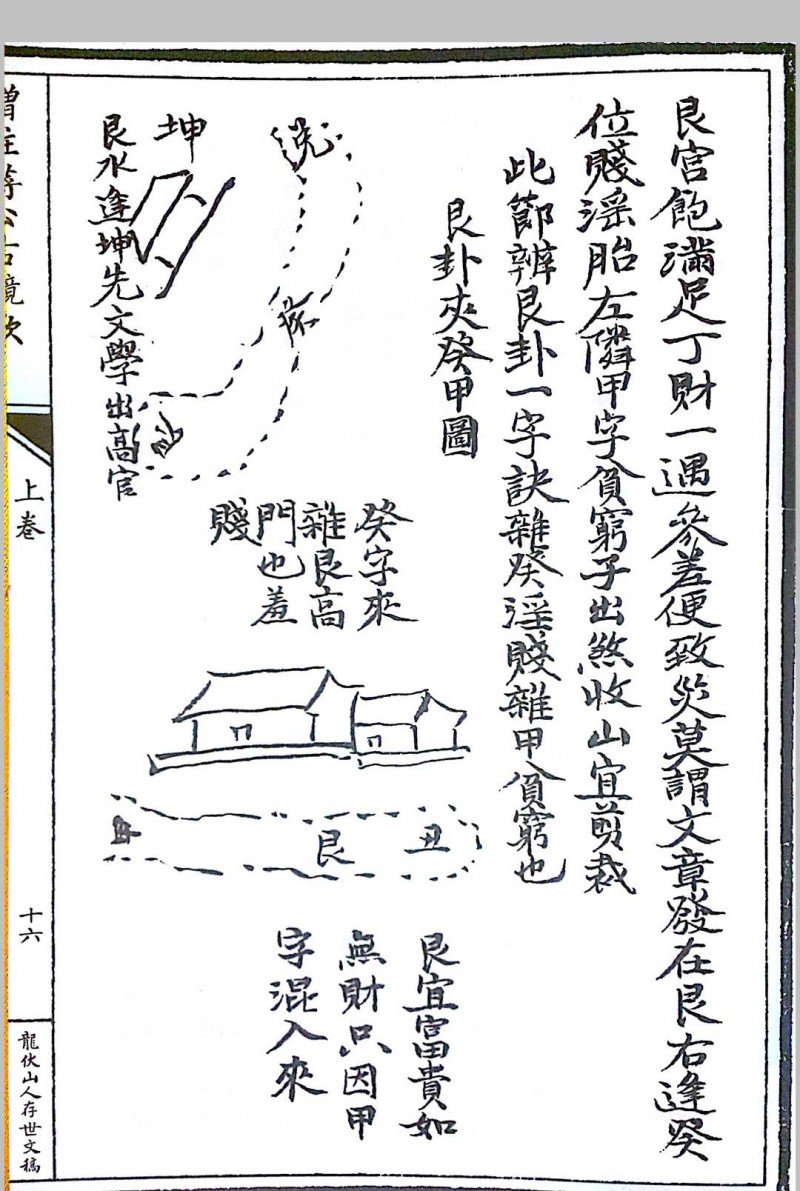 艮宮飽滿足丁財一遇參差便致災莫謂文章發在艮右逢癸
位賤淫胎左隣甲字貧窮子出煞收山宜剪裁
此節辨艮卦一字訣雜癸淫賤雜甲貧窮也
艮卦夾癸甲圖
坤
艮水逢坤先文學出高官
癸字來
雜艮高
門也羞
賤
丑
艮
艮宜富貴如
無財只因甲
字混入來
上卷
十六
龍伏山人存世文稿